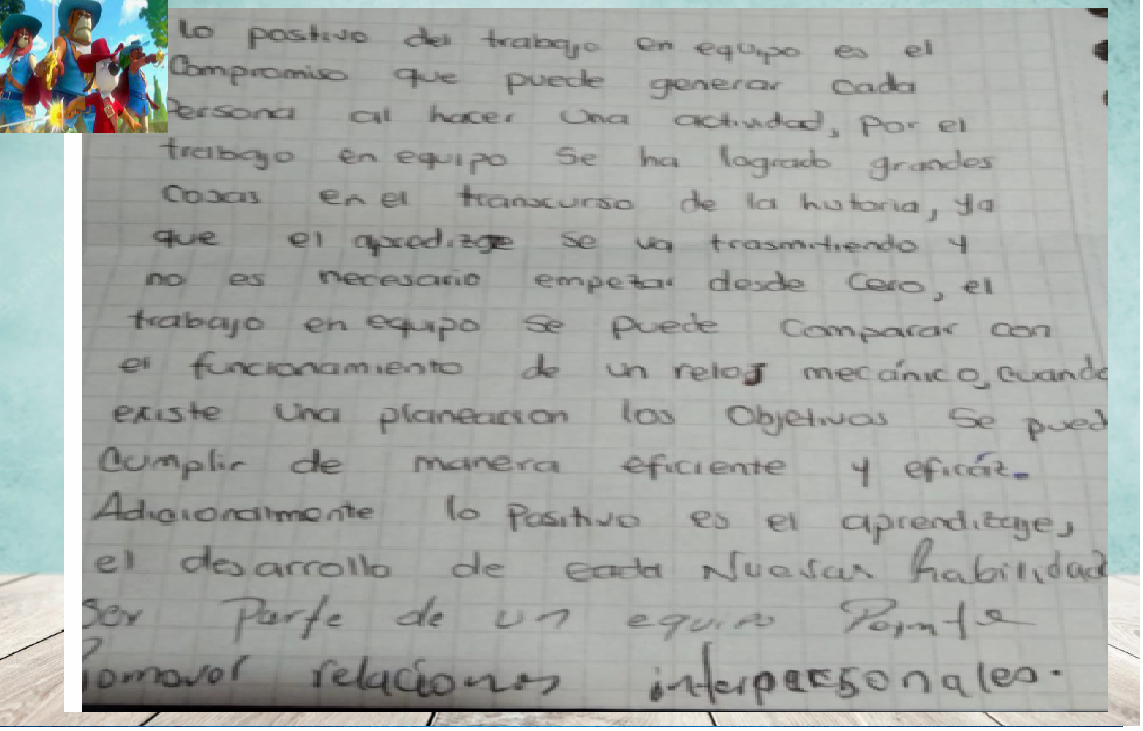 lo positivo del trabajo en equipo es el
Compromiso que puede generar cada
Persona al hacer una actividad, Por el
trabajo en equipo se ha logrado grandes
cosas en el transcurso de la historia, ya
que el apredizge se va trasmitiendo y
no es necesario empezar desde cero, el
trabajo en equipo se puede comparar con
el funcionamiento de un reloj mecánico, cuando
existe una planeacion los Objetivos se pued
Cumplir de manera eficiente y eficáz.
Adicionalmente lo Positivo es el aprendizaje,
el desarrollo de Nuevas habilidad
Ser Parte de un equipo
romover relaciones interpersonales.